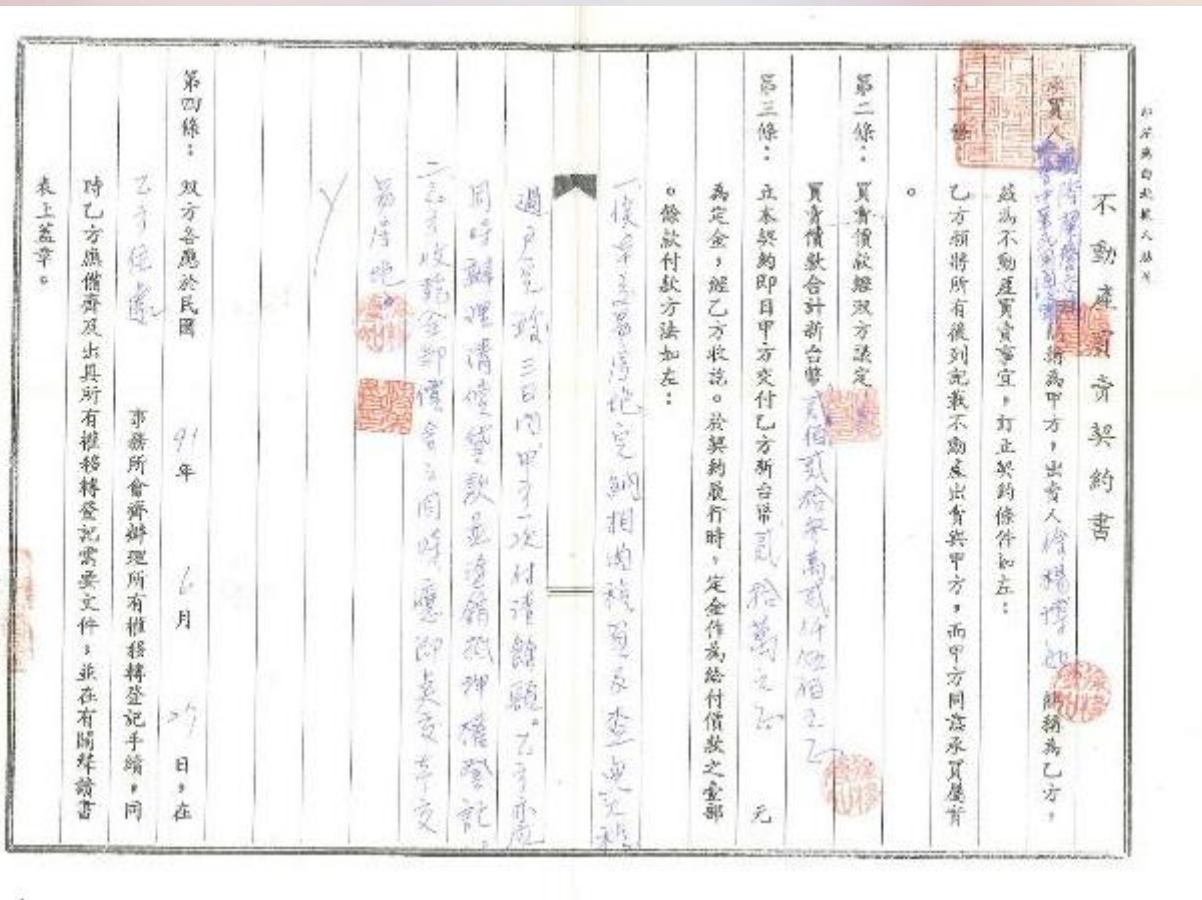 不動產買賣契約書
承買人 簡稱為甲方，出賣人 簡稱為乙方，
茲為不動產買賣事宜，訂立契約條件如左：
第一條：乙方願將所有後列記載不動產出售與甲方，而甲方同意承買屬實
。
第二條：買賣價款經双方議定
買賣價款合計新台幣貳佰貳拾 萬貳仟伍佰元
第三條：立本契約即日甲方交付乙方新台幣貳拾萬元 元
為定金，經乙方收訖。於契約履行時，定金作為給付價款之壹部
。餘款付款方法如左：
一俟 完納相關稅 及查無欠稅
過戶完 三日內，甲方一次付清餘額。乙方亦應
同時辦理清償貸款並塗銷抵押權登記。
二乙方收訖全部價 之同時應即 交
第四條：双方各應於民國 91年 6月 27日，在
乙方 事務所會齊辦理所有權移轉登記手續，同
時乙方應備齊及出具所有權移轉登記需要文件，並在有關聲請書
表上蓋章。